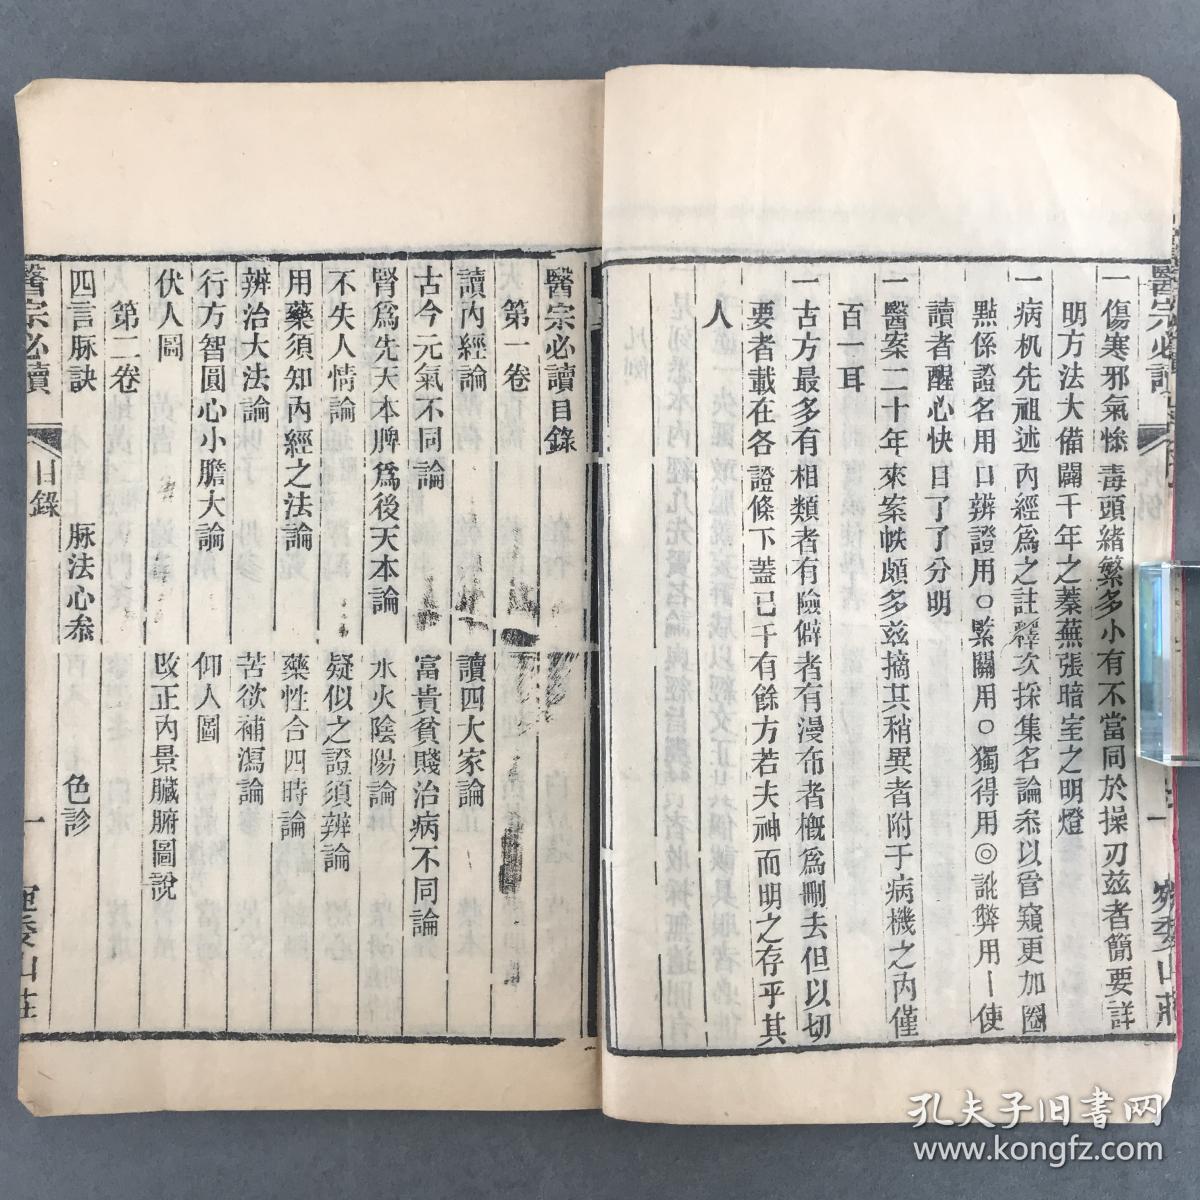 一傷寒邪氣慘毒頭緒繁多小有不當同於操刃茲者簡要詳
明方法大備闢千年之蓁蕪張暗室之明燈
一病机先祖述內經爲之註釋次採集名論叅以管窺更加圈
點係證名用口辨證用○緊關用○獨得用◎訛弊用丨使
讀者醒心快目了了分明
一醫案二十年來案帙頗多茲摘其稍異者附于病機之內僅
百一耳
一古方最多有相類者有險僻者有漫布者槪爲刪去但以切
要者載在各證條下蓋已千有餘方若夫神而明之存乎其
人
醫宗必讀目錄
第一卷
讀內經論 讀四大家論
古今元氣不同論 富貴貧賤治病不同論
腎爲先天本脾爲後天本論 水火陰陽論
不失人情論 疑似之證須辨論
用藥須知內經之法論 藥性合四時論
辨治大法論 苦欲補瀉論
行方智圓心小膽大論 仰人圖
伏人圖 改正內景臟腑圖說
第二卷
四言脉訣 脉法心叅 色診
醫宗必讀 目錄 一 山莊
醫宗必讀 凡例 一 山莊
孔夫子旧书网
www.kongfz.com